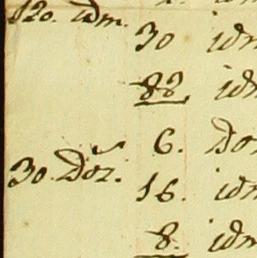 120. idm.
30 idm
88 idm
6. Doz
30. Doz.
16. idm
8. idm